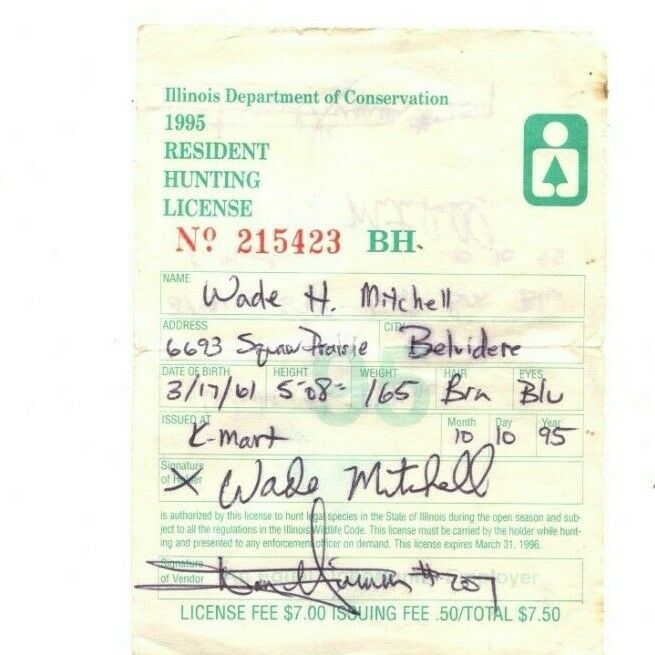 Illinois Department of Conservation
1995
RESIDENT
HUNTING
LICENSE
Nº 215423 BH
NAME
Wade H. Mitchell
ADDRESS CITY
6693 Squaw Prairie Belvidere
DATE OF BIRTH HEIGHT WEIGHT HAIR EYES
3/17/61 5-08- 165 Brn Blu
ISSUED AT Month Day Year
K-Mart 10 10 95
Signature
of Holder
X Wade Mitchell
is authorized by this license to hunt legal species in the State of Illinois during the open season and sub-
ject to all the regulations in the Illinois Wildlife Code. This license must be carried by the holder while hunt-
ing and presented to any enforcement officer on demand. This license expires March 31, 1996.
Signature
of Vendor
LICENSE FEE $7.00 ISSUING FEE .50/TOTAL $7.50